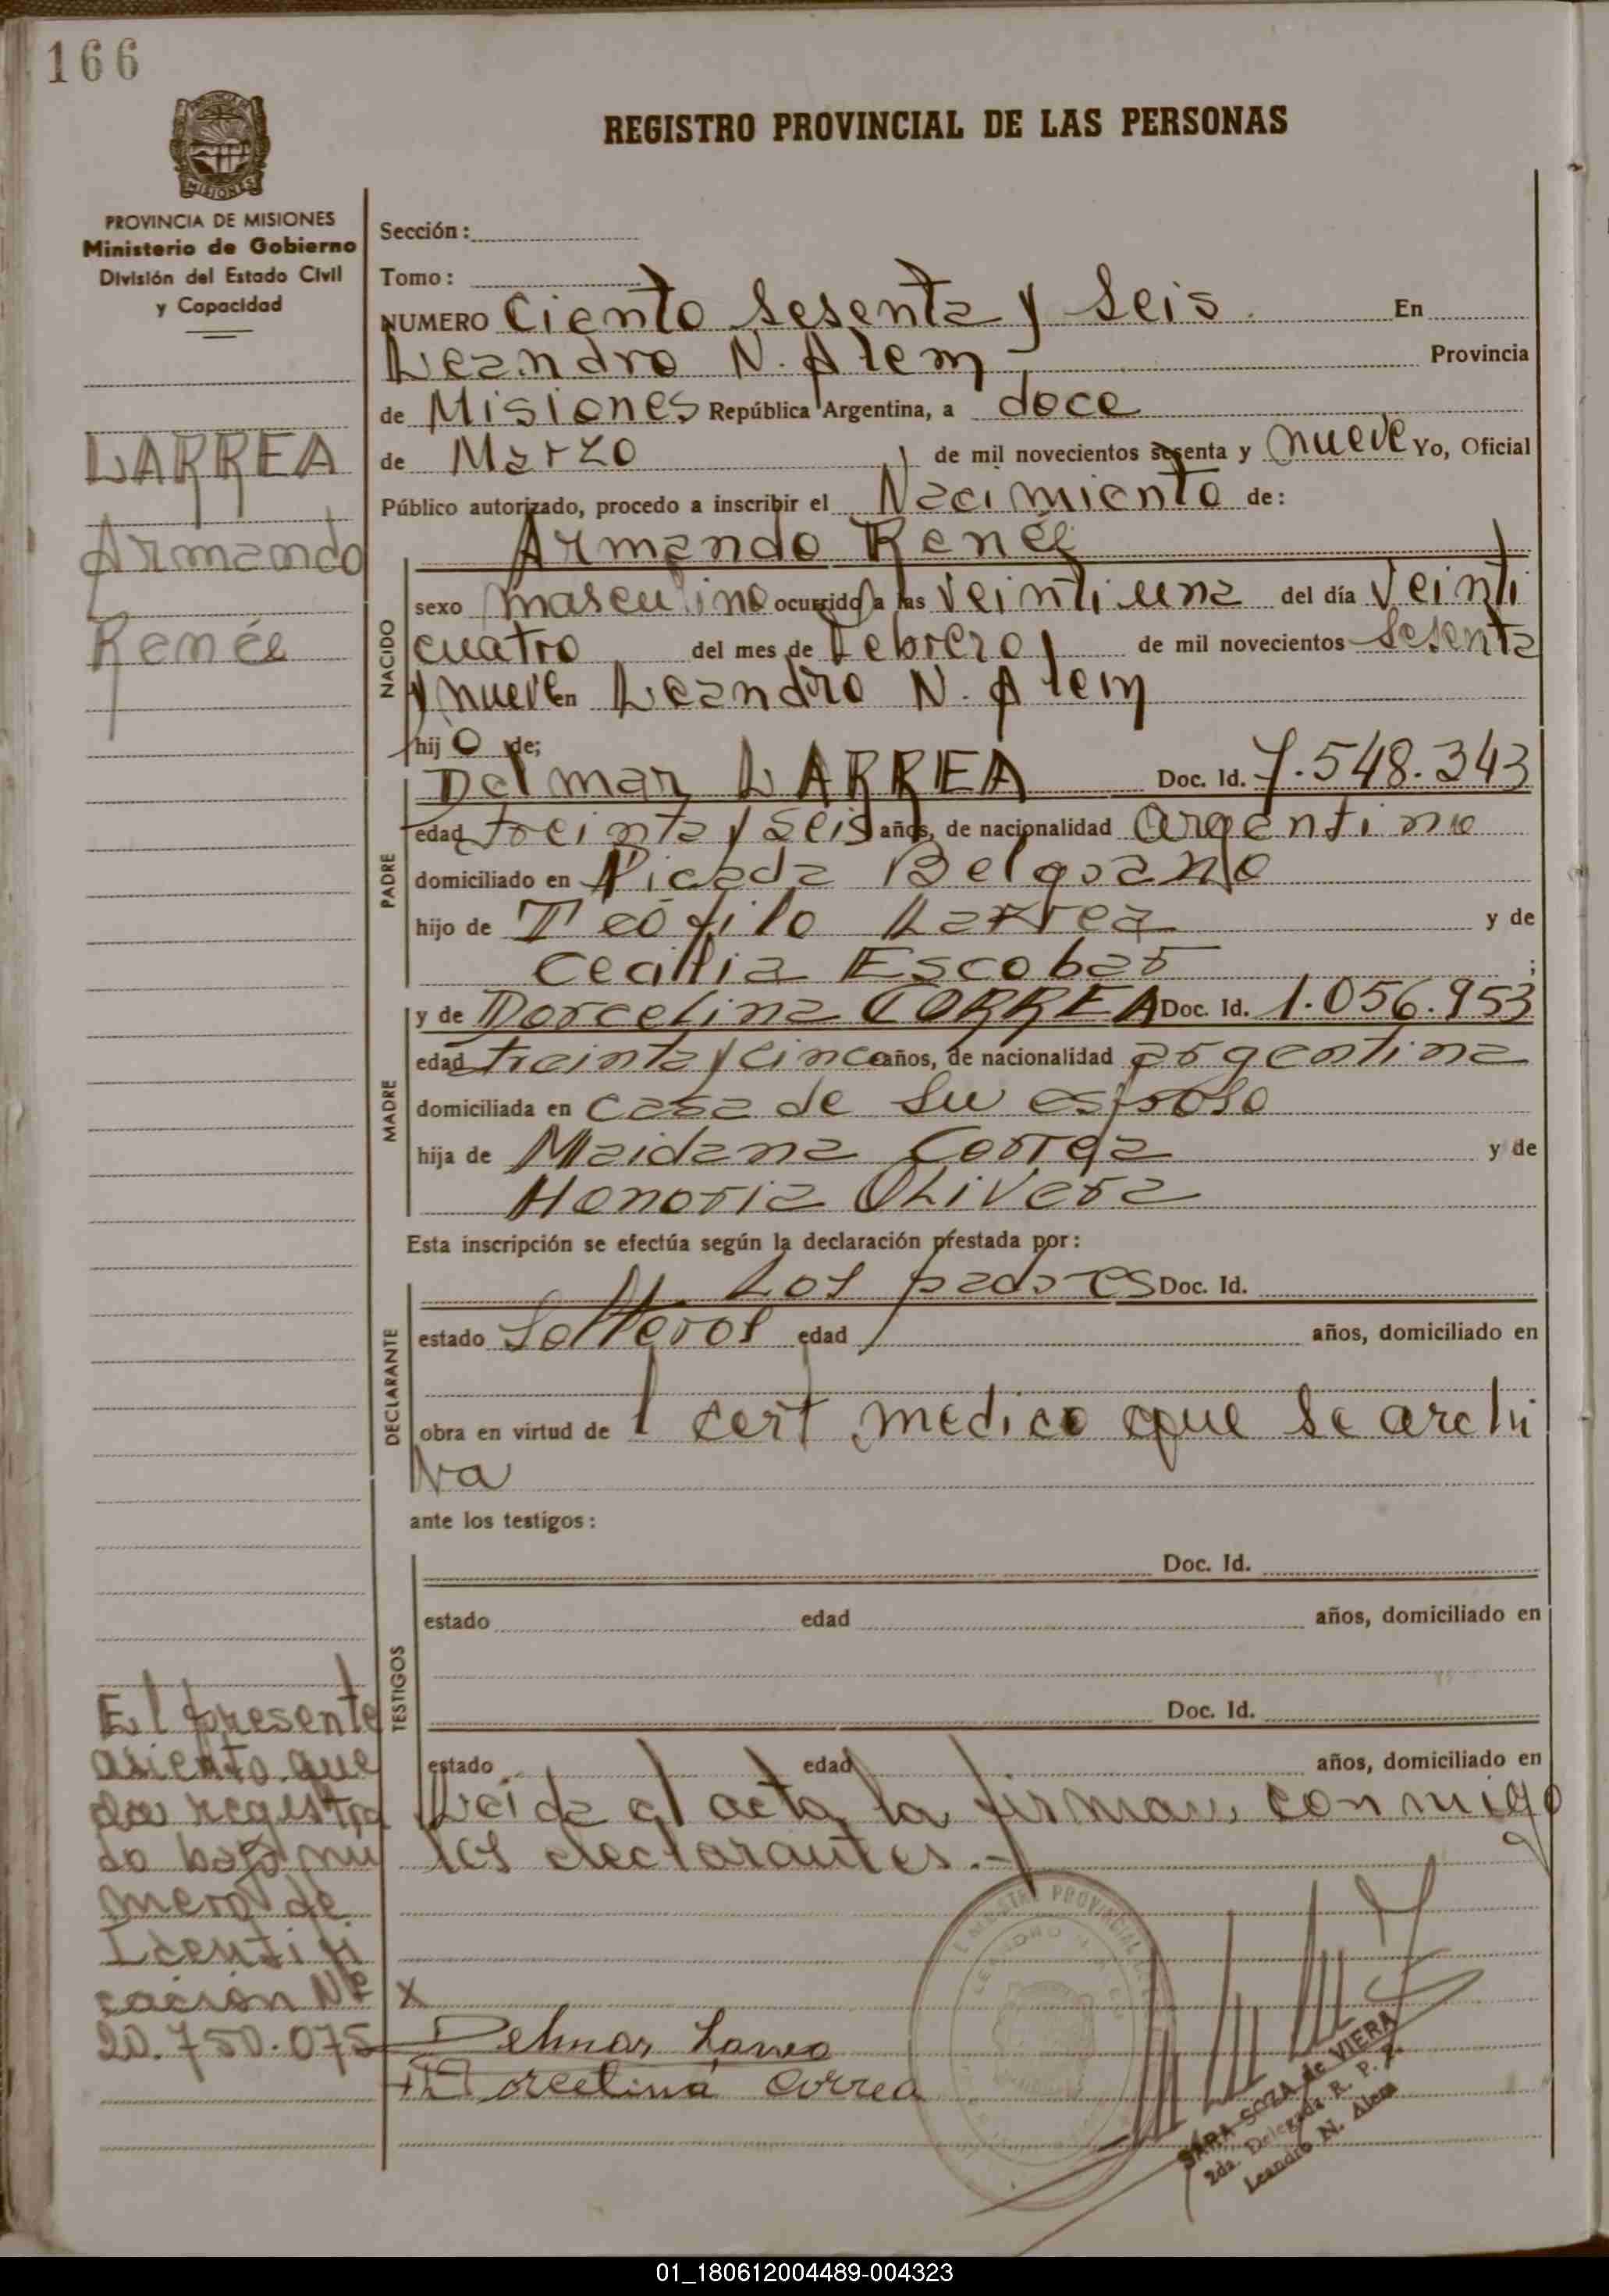 166
REGISTRO PROVINCIAL DE LAS PERSONAS
MISIONES
PROVINCIA DE MISIONES
Ministerio de Gobierno
División del Estado Civil
y Capacidad
LARREA
Armando
Renée
Sección:
Tomo:
NUMERO Ciento Sesenta y Seis. En
Leandro N. Alem Provincia
de Misiones República Argentina, a doce
de Marzo de mil novecientos sesenta y nueve Yo, Oficial
Público autorizado, procedo a inscribir el Nacimiento de:
Armando Renée
NACIDO
sexo masculino ocurrido a las veintiuna del día Veinti
cuatro del mes de Febrero de mil novecientos Sesenta
y nueve en Leandro N. Alem
hij o de;
PADRE
Delmar LARREA Doc. Id. 7.548.343
edad treinta y seis años, de nacionalidad argentino
domiciliado en Picada Belgrano
hijo de Teófilo Larrea y de
Cecilia Escobar ;
MADRE
y de Dorcelina CORREA Doc. Id. 1.056.953
edad treinta y cinco años, de nacionalidad argentina
domiciliada en casa de su esposo
hija de Maidana Correa y de
Honoria Olivera
Esta inscripción se efectúa según la declaración prestada por:
DECLARANTE
Los padres Doc. Id.
estado Solteros edad años, domiciliado en
obra en virtud de 1 cert medico que se archi
va
ante los testigos:
TESTIGOS
Doc. Id.
estado edad años, domiciliado en
Doc. Id.
estado edad años, domiciliado en
Leida el acta la firman conmigo
los declarantes.-
El presente
asiento que
da registra
do bajo nu
mero de
Identifi
cación Nº
20.750.075
X
Delmar Larrea
Dorcelina Correa
SARA SOZA de VIERA
2da. Delegada R. P. P.
Leandro N. Alem
01_180612004489-004323